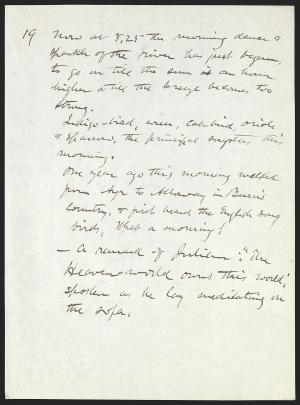 19 Now at 8,25 the morning dance &
sparkle of the river has just begun,
to go on till the sun is an hour
higher & till the breeze becomes too
strong.
Indigo-bird, wren, cat-bird, oriole
& sparrow, the principal songsters this
morning.
One year ago this morning walked
from Ayr to Alloway in Burns'
country, & first heard the English song
birds, What a morning!
— A remark of Julian: "The
Heaven-world owns this world",
spoken as he lay meditating on
the sofa.